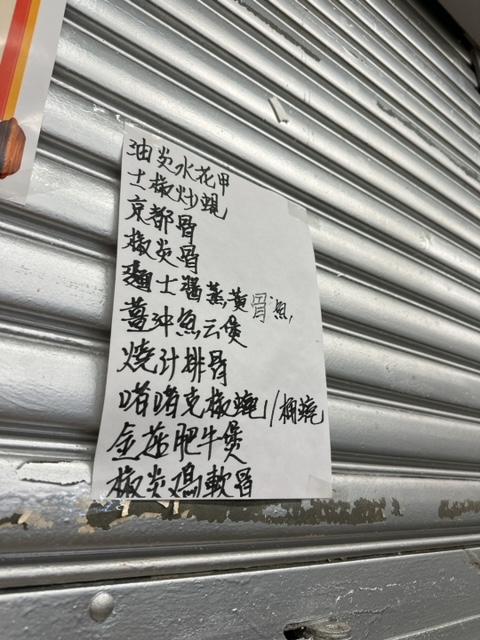 油炎水花甲
士椒炒蜆
京都骨
椒炎骨
麵士醬蒸黄骨魚
薑冲魚云煲
燒汁排骨
喏喏克椒蜿/楜蜿
金菇肥牛煲
椒炎鸡軟骨